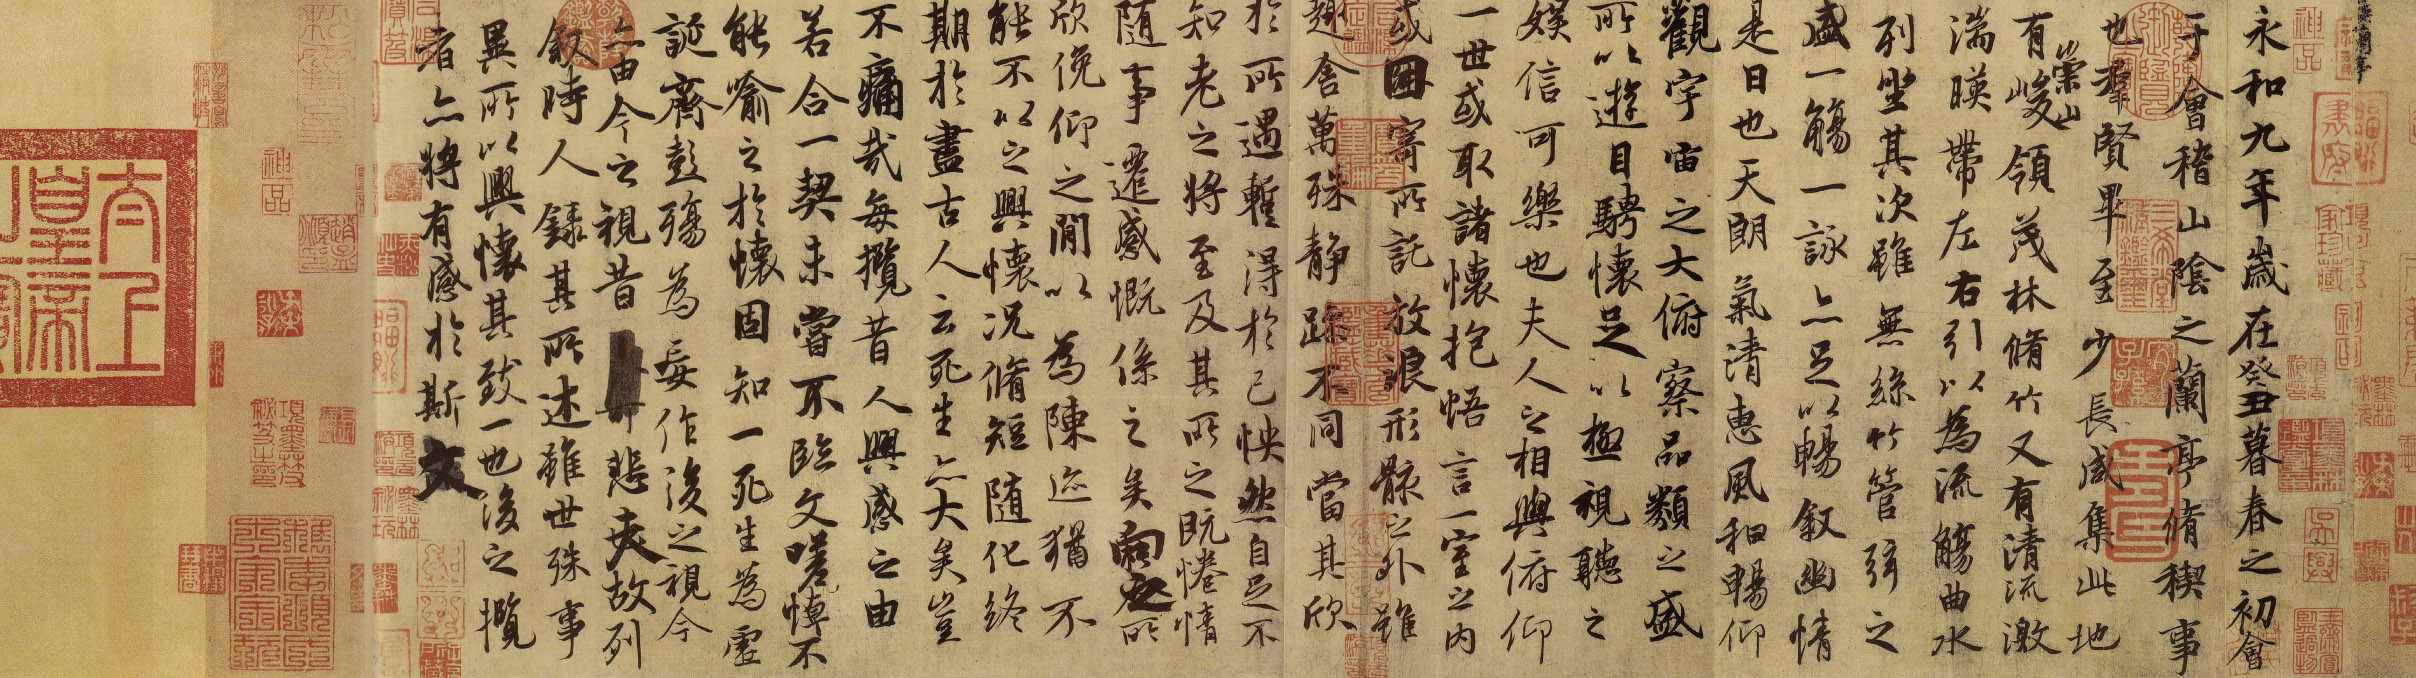 永和九年歲在癸丑暮春之初會
于會稽山陰之蘭亭脩稧事
也羣賢畢至少長咸集此地
有崇山峻領茂林脩竹又有清流激
湍暎帶左右引以為流觴曲水
列坐其次雖無絲竹管弦之
盛一觴一詠亦足以暢敘幽情
是日也天朗氣清惠風和暢仰
觀宇宙之大俯察品類之盛
所以遊目騁懷足以極視聽之
娛信可樂也夫人之相與俯仰
一世或取諸懷抱悟言一室之內
或因寄所託放浪形骸之外雖
趣舍萬殊靜躁不同當其欣
於所遇蹔得於己怏然自足不
知老之將至及其所之既惓情
隨事遷感慨係之矣向之所
欣俛仰之閒以為陳迹猶不
能不以之興懷況脩短隨化終
期於盡古人云死生亦大矣豈
不痛哉每攬昔人興感之由
若合一契未嘗不臨文嗟悼不
能喻之於懷固知一死生為虛
誕齊彭殤為妄作後之視今
亦由今之視昔悲夫故列
敘時人錄其所述雖世殊事
異所以興懷其致一也後之攬
者亦將有感於斯文
神品
神品
太上
皇帝